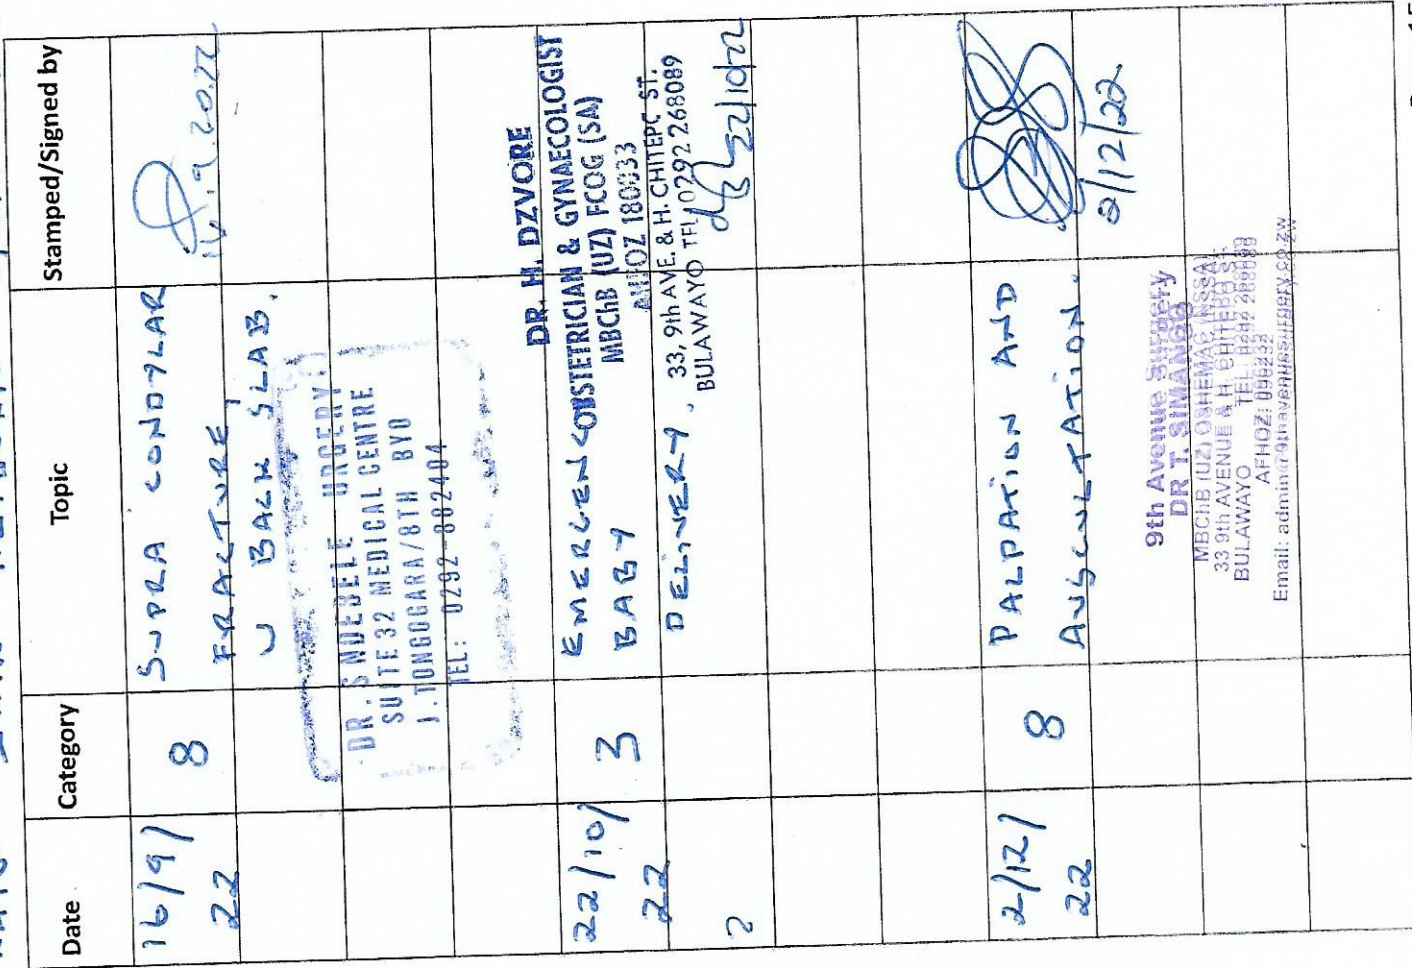 Date Category Topic Stamped/Signed by
16/9/ 8 SUPRA CONDYLAR
22 FRACTURE,
U BACK SLAB.
16.9.2022
DR. S NDEBELE URGERY
SUITE 32 MEDICAL CENTRE
J. TONGOGARA/8TH BYO
TEL: 0292-882404
22/10/ 3 EMERGENCY
22 BABY
2 DELIVERY.
DR. H. DZVORE
OBSTETRICIAN & GYNAECOLOGIST
MBChB (UZ) FCOG (SA)
AHFOZ 180033
33, 9th AVE. & H. CHITEPO ST.
BULAWAYO TEL 0292 268089
22/10/22
2/12/ 8 PALPATION AND
22 AUSCULTATION.
2/12/22.
9th Avenue Surgery
DR T. SIMANGO
MBChB (UZ) OSHEMAC (NSSA)
33 9th AVENUE & H. CHITEPO ST.
BULAWAYO TEL: 0292 268089
AFHOZ:
Email: admin@9thavenuesurgery.co.zw